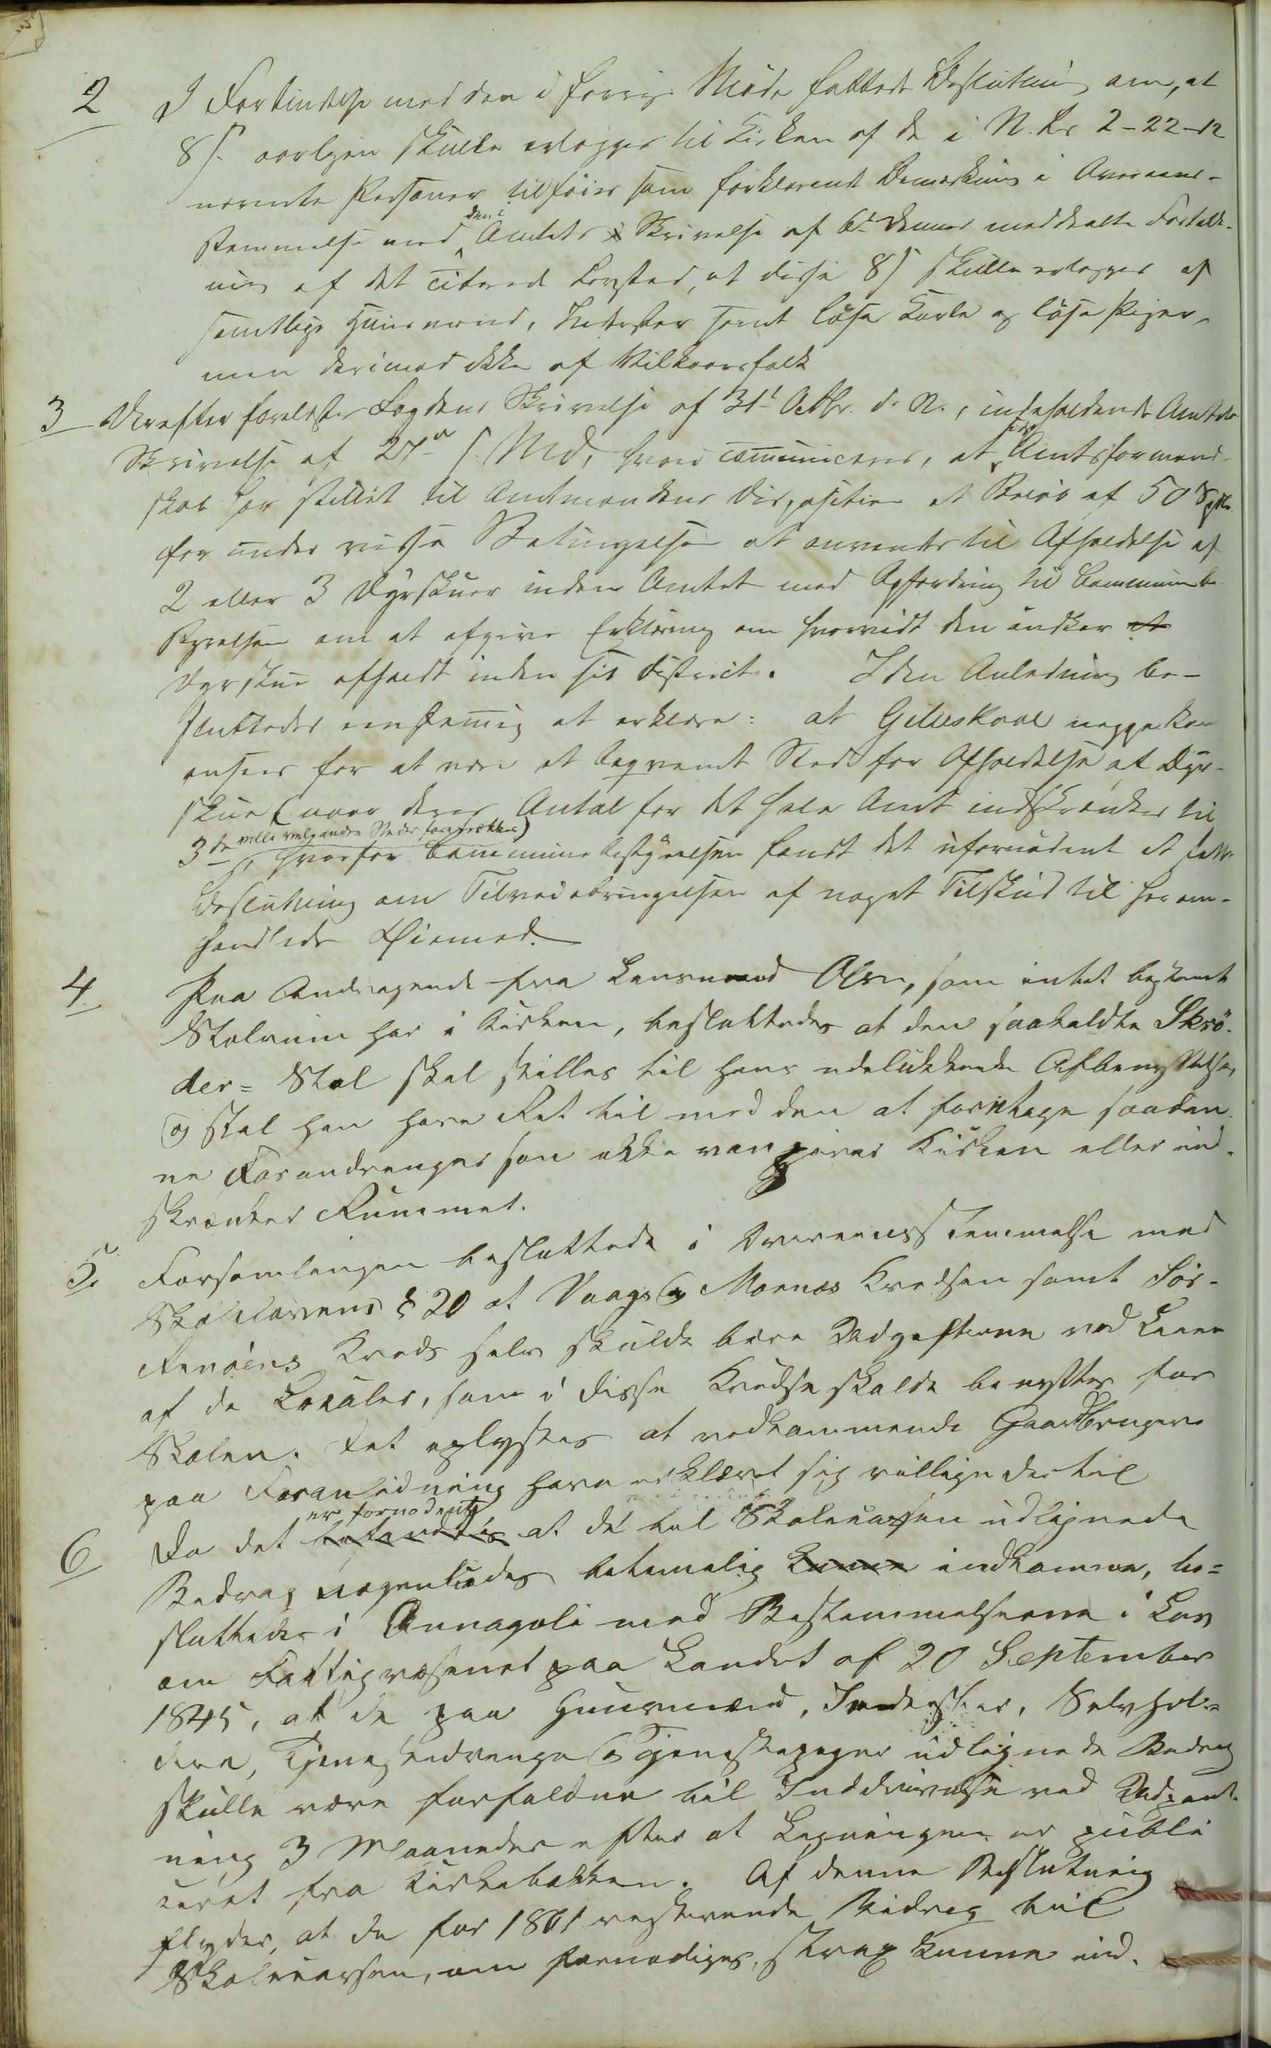 2 I Forbindelse med den i forrige Møde fattede Beslutning om, at
8 s. aarlgen skulle erlægges til Kirken af de i N. L's 2-22-12
nævnte Personer tilføies som forklarende Bemærkning i Overeens-
stemmelse med den i Amtets Skrivelse af 6te dennes meddeelte Fortolk-
ning af det citerede Lovsted, at disse 8 s skulle erlægges af
samtlige Huusmænd, Inderster samt løse Karle og løse Piger,
men derimod ikke af Vilkaarsfolk
3 Derefter forelæstes Fogdens Skrivelse af 31te Octbr. d. A., indeholdende Amtets
Skrivelse af 27de s. Md, hvori comuniceres, at Amtsformand-
skab har stillet til Amtmandens Disposition et Beløb af 50 Spdlr.
for under visse Betingelser at anvendes til Afholdelse af
2 eller 3 Dyrskuer inden Amtet med Opfordring til Communebe-
styrelsen om at afgive Erklæring om hvorvidt den ønsker et
Dyrskue afholdt inden sit District. I den Anledning be-
sluttedes eenstemig at erklære: at Gildeskaal neppe kan
ansees for at være et beqvemt Sted for Afholdelse af Dyr-
skue (naar deres Antal for det hele Amt indskrænkes til
3de ville vel andre Steder foretrækkes)
hvorfor Communebestyrelsen fandt det ufornødent at fatte
Beslutning om Tilveiebringelsen af noget Tilskud til her om-
handlede Øiemed.
4 Paa Andragende fra Lensmand Olsen, som intet bestemt
Stolerum har i Kirken, besluttedes at den saakaldte Skrø-
der= Stol skal stilles til hans udelukkende Afbenyttelse,
og skal han have Ret til med den at foretage saadan-
ne Forandringer som ikke vanzirer Kirken eller ind-
skrænker Rummet.
5. Forsamlingen besluttede i Overeensstemmelse med
Skolelovens § 20 at Vaags og Mornæs Kredsen samt Sør-
Arnøens Kreds selv skulde bære Udgifterne ved Leien
af de Locales, som i disse Kredse skulde benyttes for
Skolen. Det oplystes at vedkommende Gaardbrugere
paa Foranledning have erklæret sig villige dertil
6 Da det er fornødent at de til Skolecassen udlignede
Bidrag nogenlunde betimelig kunne indkomme, be=
sluttedes i Analogi med Bestemmelserne i Lov
om Fattigvæsenet paa Landet af 20 September
1845, at de paa Huusmænd, Inderster, Selvhol-
dere, Tjenestedrenge og Tjenestepiger udlignede Bidrag
skulle være forfaldne til Inddrivelse ved Udpant-
ning 3 Maaneder efter at Ligningen er publi
ceret fra Kirkebakken. Af denne Beslutning
flyder, at de for 1861 resterende Bidrag til
Skolecassen, om fornødiges, strax kunne ind-